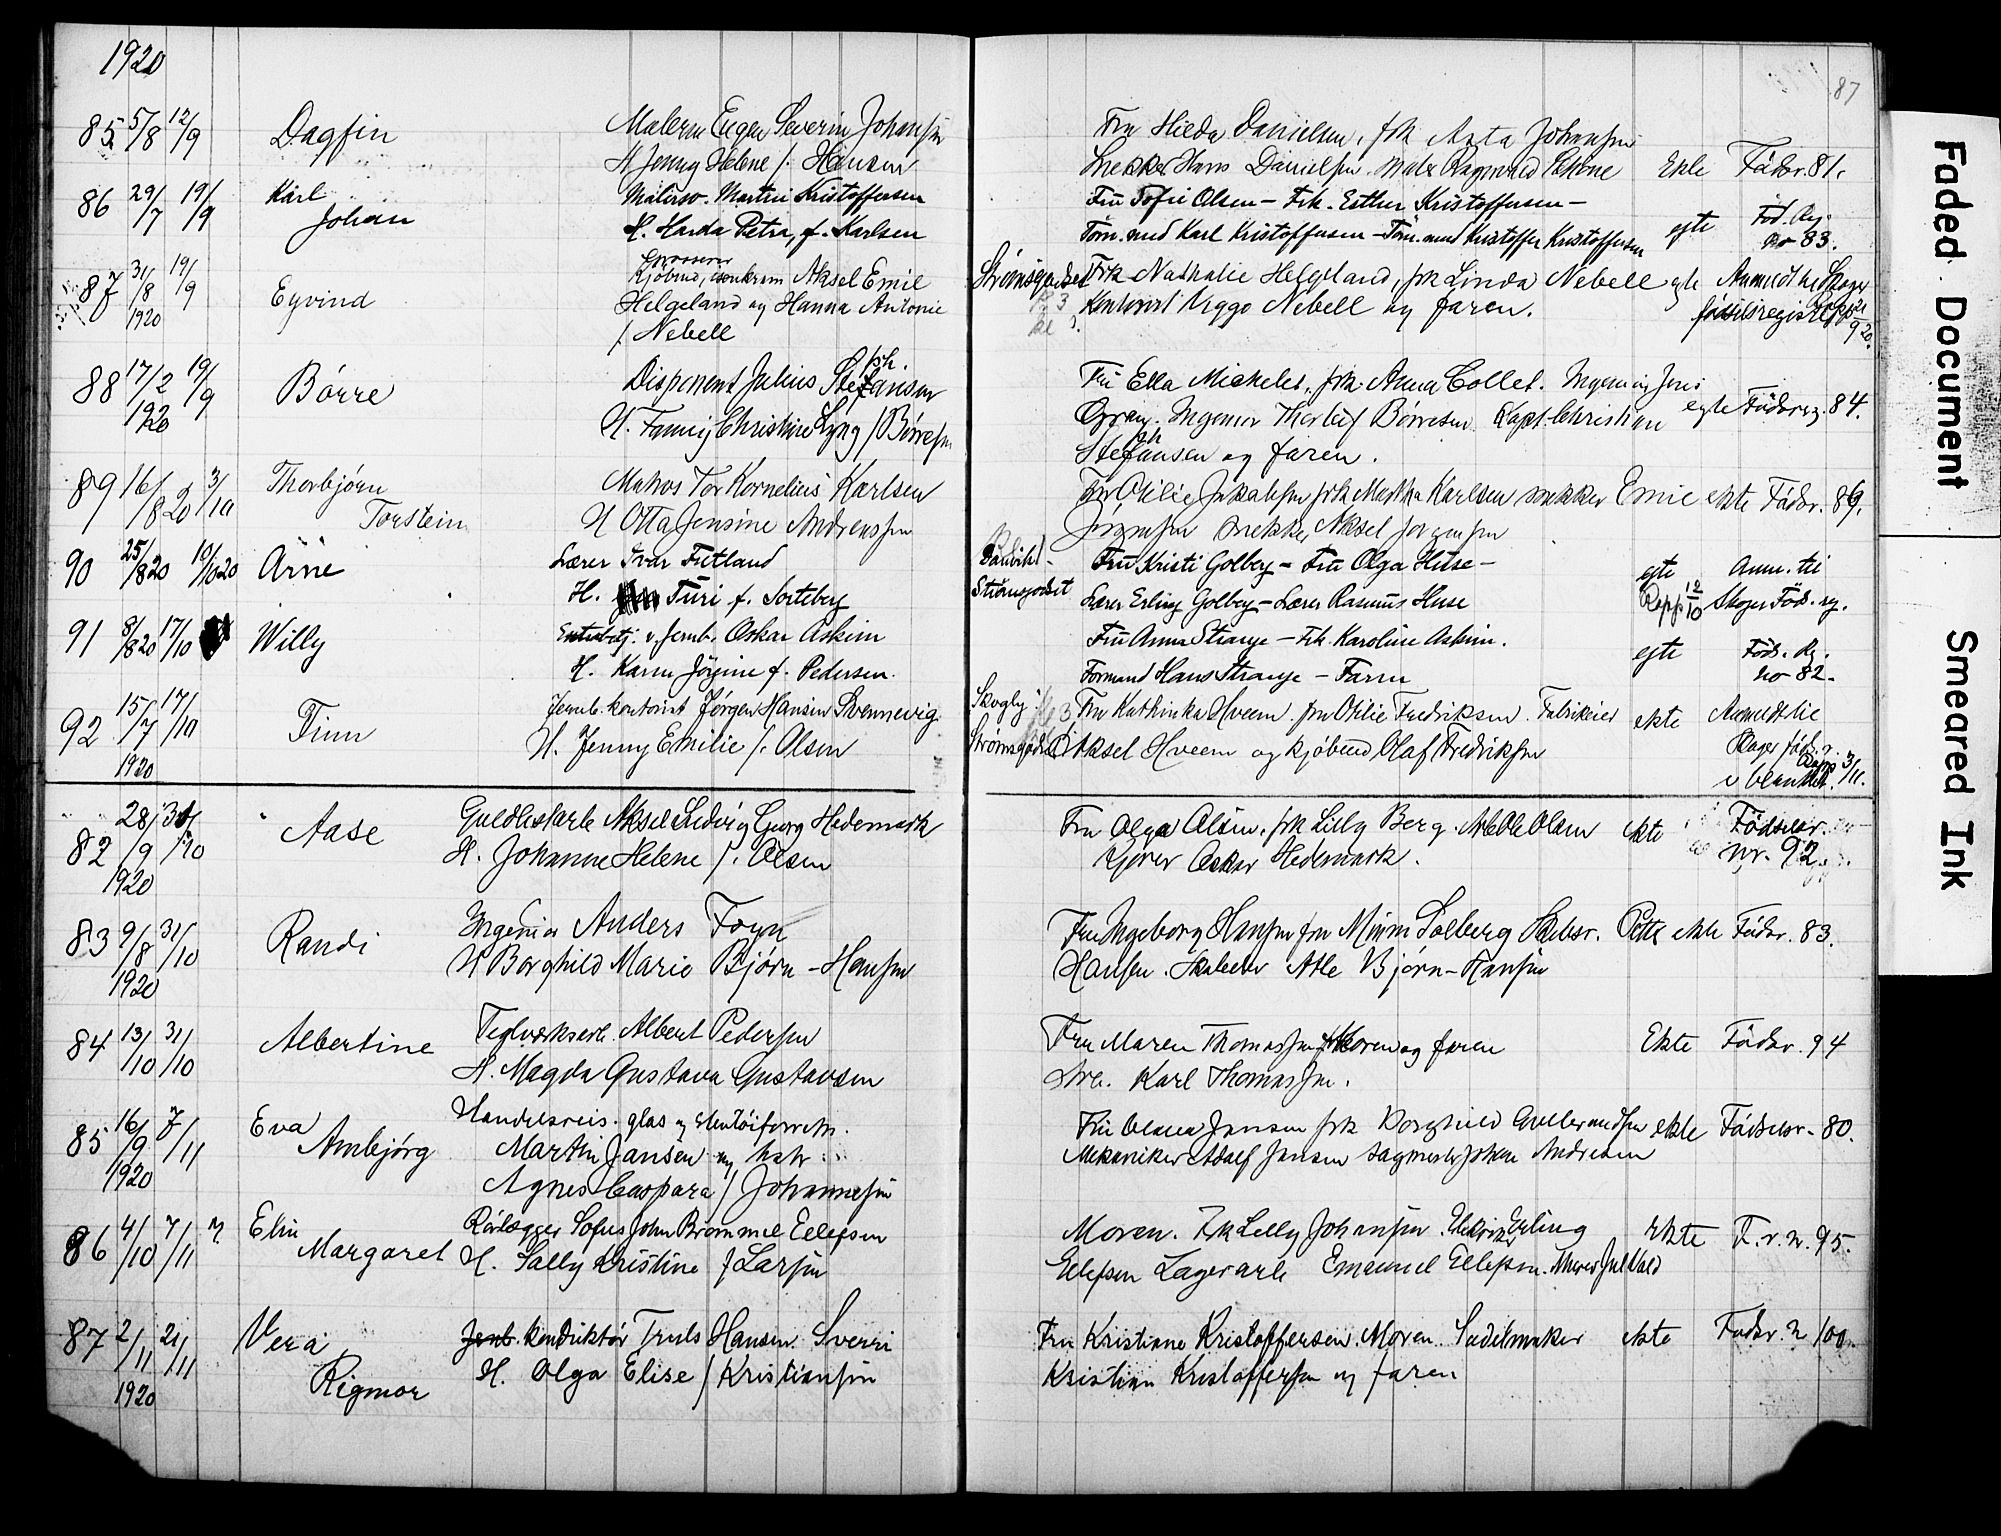 1920
87
85 5/8 12/9 Dagfin Maleren Eugen Severin Johansen Fru Hilda Danielsen, frk Asta Johansen
H Jenny Helene f. Hansen Snekker Hans Danielsen Maler Ragnvald Ekte Fødsr. 81.
86 29/7 19/9 Karl Malersv. Martin Kristoffersen Fru Sofie Olsen - Frk. Esther Kristoffersen -
Johan H. Harda Petra, f. Karlsen Tøm.mnd Karl Kristoffersen - Tøm.mnd Kristoffer Kristoffersen egte Fød. Reg. no 83.
87 31/8 19/9 1920 Eyvind Kjøbmd, Aksel Emil Strømsgodset Frk Nathalie Helgeland, frk Linda Nebell egte Anmeldt til Skoger
Helgeland og Hanna Antonie Kontorist Viggo Nebell og faren. fødselsregister
f Nebell
88 17/2 19/9 1920 Børre Disponent Julius Stefansen Fru Ella Michelet, frk. Anna Collet. Ingeniør Jens
H. Fanny Christine Lyng f Børresen Ingeniør Thorleif Børresen Kapt. Christian egte Fødsreg. 84.
Stefansen og faren.
89 16/8 20 3/10 Thorbjørn Matros Tor Kornelius Karlsen Fru Otilie Jakobsen frk Martha Karlsen snekker Emil ekte Fødsr. 89.
Torstein H Otta Jensine Andreassen Jørgensen snekker Aksel Jørgensen
90 25/8 20 10/10 20 Arne Lærer Ivar Futland Danvik - Fru Kristi Golberg - Fru Olga Huse - egte Anm. til
H. Turi f. Sorteberg Strømsgodset Lærer Erling Golberg - Lærer Rasmus Huse Rapp 12/10 Skoger Fød. reg.
91 8/8 20 17/10 Willy v. Jernb. Oskar Askim Fru Anna Strange - Frk. Karoline Askim. egte Føds. Reg.
H. Karen Jørgine f. Pedersen. Formand Hans Strange - Faren no 82.
92 15/7 17/10 1920 Finn Jernb. kontorist Jørgen Hansen Svennevig Skogly Fru Kathinka Hveem. fru Otilie Fredriksen. Fabrikeier ekte Anmeldt til
H. Jenny Emilie f. Olsen Strømsgodset Aksel Hveem og kjøbmd Olaf Fredriksen Skoger føds.r.
3/11.
82 28/9 31/10 1920 Aase Guldlistarb Aksel Ludvig Georg Hedemark Fru Olga Olsen. frk Lilly Berg. Ole Olsen ekte Fødselsr.
H. Johanne Helene f. Olsen Kjører Oskar Hedemark. nr. 92.
83 9/8 31/10 1920 Randi Ingeniør Anders Foyn Fru Ingeborg Hansen fru Mimi Solberg Skibsr. Petter ekte Fødsr. 83.
H Borghild Marie Bjørn - Hansen Hansen. Skoleelev Atle Bjørn - Hansen
84 13/10 31/10 Albertine Teglverksarb. Albert Pedersen Fru Maren Thomassen Moren og faren Ekte Fødsr. 94
H. Magda Gustava Gustavsen Karl Thomassen.
85 16/9 7/11 1920 Eva Handelsreis. glas og stentøiforretn. Fru Jansen frk Borghild Gulbrandsen ekte Fødselsr. 80.
Arnbjørg Martin Jansen og hstr Mekaniker Adolf Jansen sagmester Johan Andresen
Agnes Caspara f Johannesen
86 4/10 7/11 Elin Rørlægger Sofus John Brommel Ellefsen Moren. Frk Lilly Johansen. Elektriker Erling ekte F.r.n. 95.
Margaret H. Sally Kristine f Larsen Ellefsen Lagerarb Emanuel Ellefsen.
87 2/11 21/11 1920 Vera Jernb. konduktør Truls Hansen Sverri Fru Kristiane Kristoffersen. Moren. Sadelmaker ekte Fødsr. n 100.
Rigmor H. Olga Elise f Kristiansen Kristian Kristoffersen og faren
Faded Document
Smeared Ink